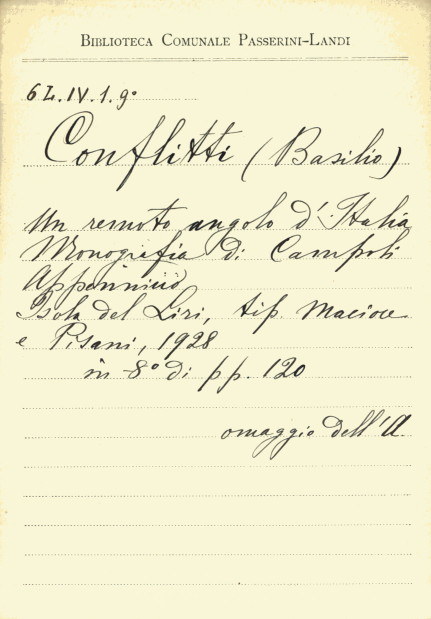 BIBLIOTECA COMUNALE PASSERINI-LANDI
6L.IV.1.9º
Conflitti (Basilio)
Un remoto angolo d'Italia
Monografia di Campoli
Appennino
Isola del Liri, tip. Macioce
e Pisani, 1928
in-8º di pp. 120
omaggio dell'A.